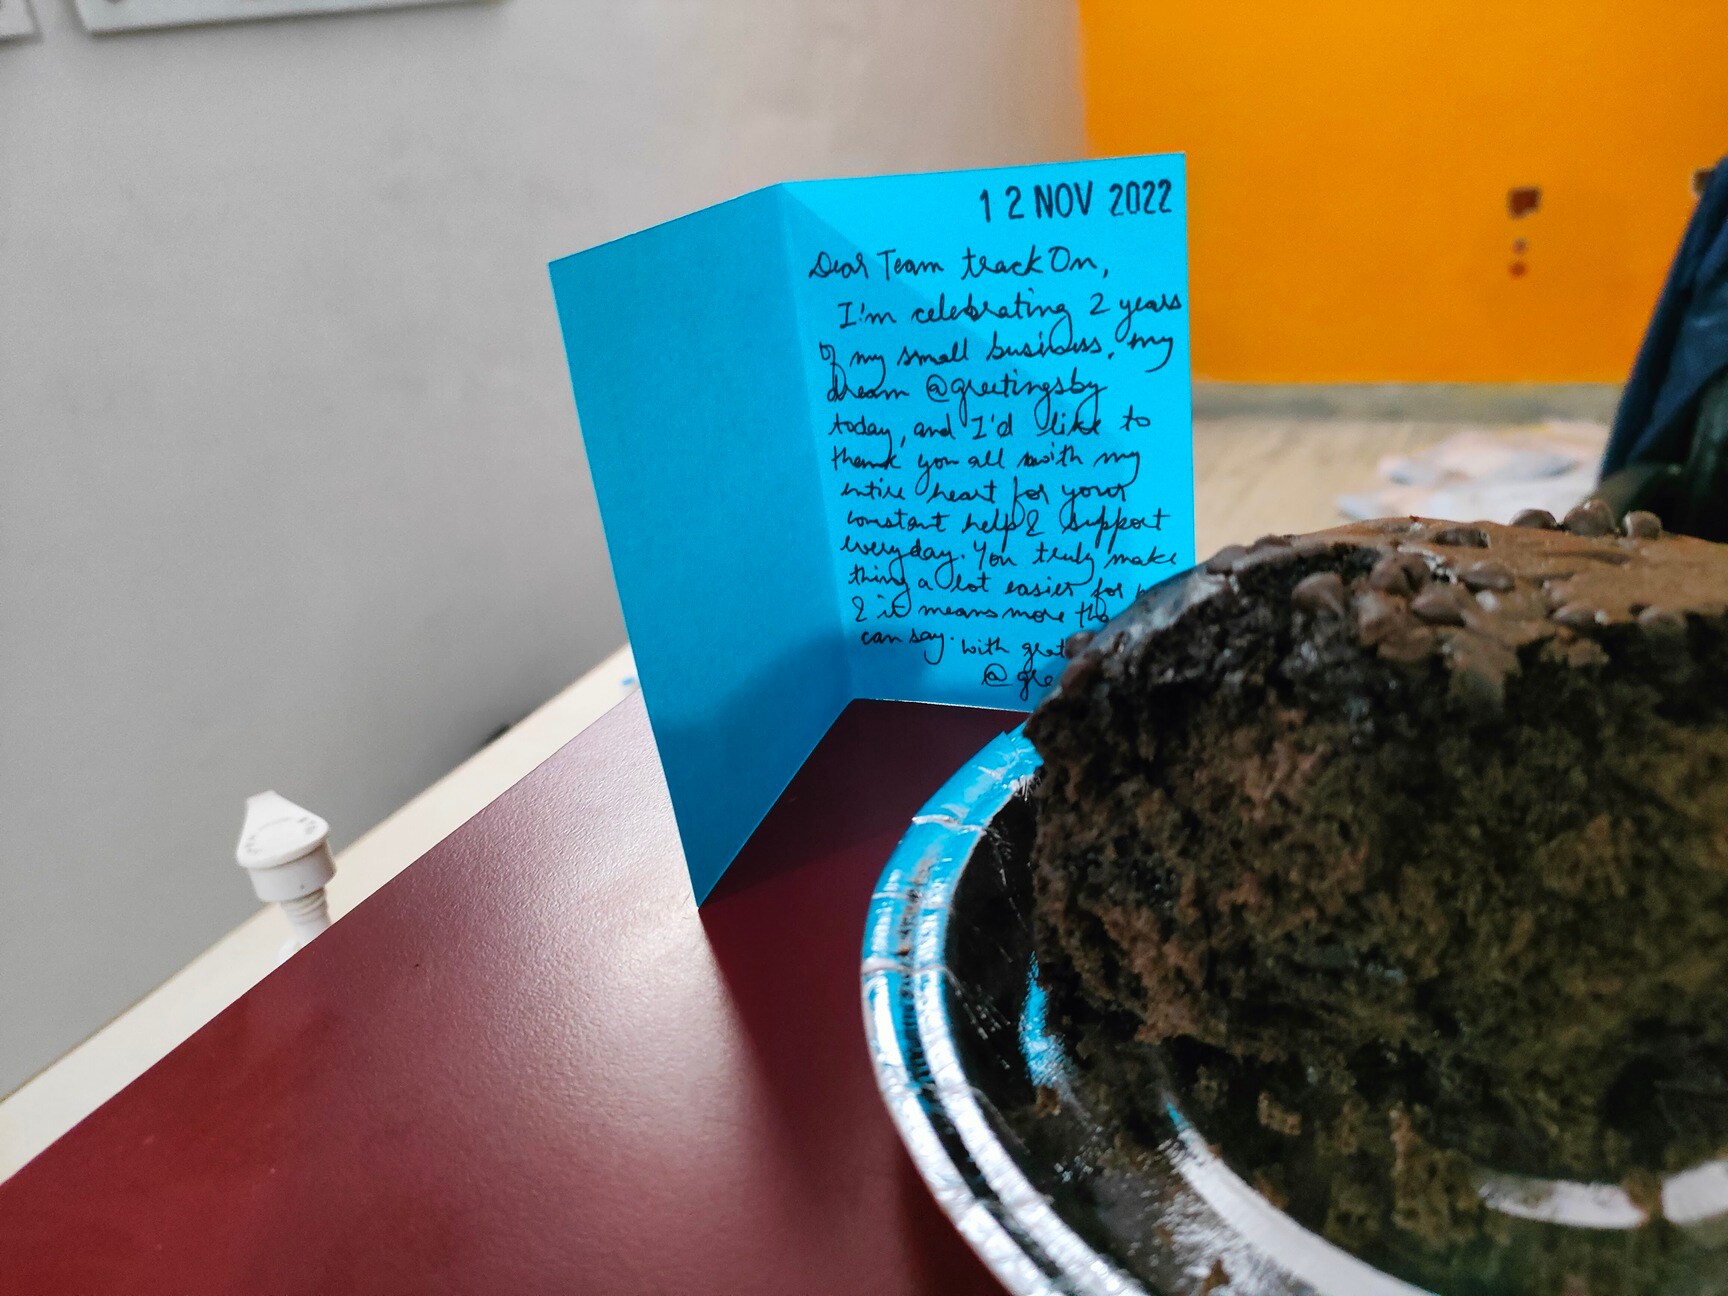 12 NOV 2022
Dear Team track On,
I'm celebrating 2 years
of my small business, my
dream @greetingsby
today, and I'd like to
thank you all with my
entire heart for your
constant help & support
everyday. You truly make
thing a lot easier for
& it means more
can say. with